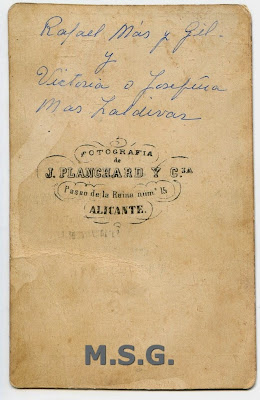 Rafael Más y Gil.
y
Victoria o Josefina
Mas Zaldivar
FOTOGRAFIA
de
J. PLANCHARD Y C.IA
Paseo de la Reina num.º 15
ALICANTE.
M.S.G.